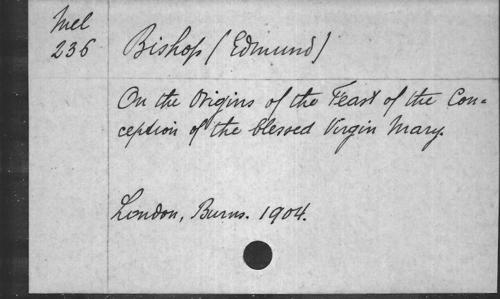 Mel
236
Bishop (Edmund)
On the Origins of the Feast of the Con=
ception of the blessed Virgin Mary.
London, Burns. 1904.